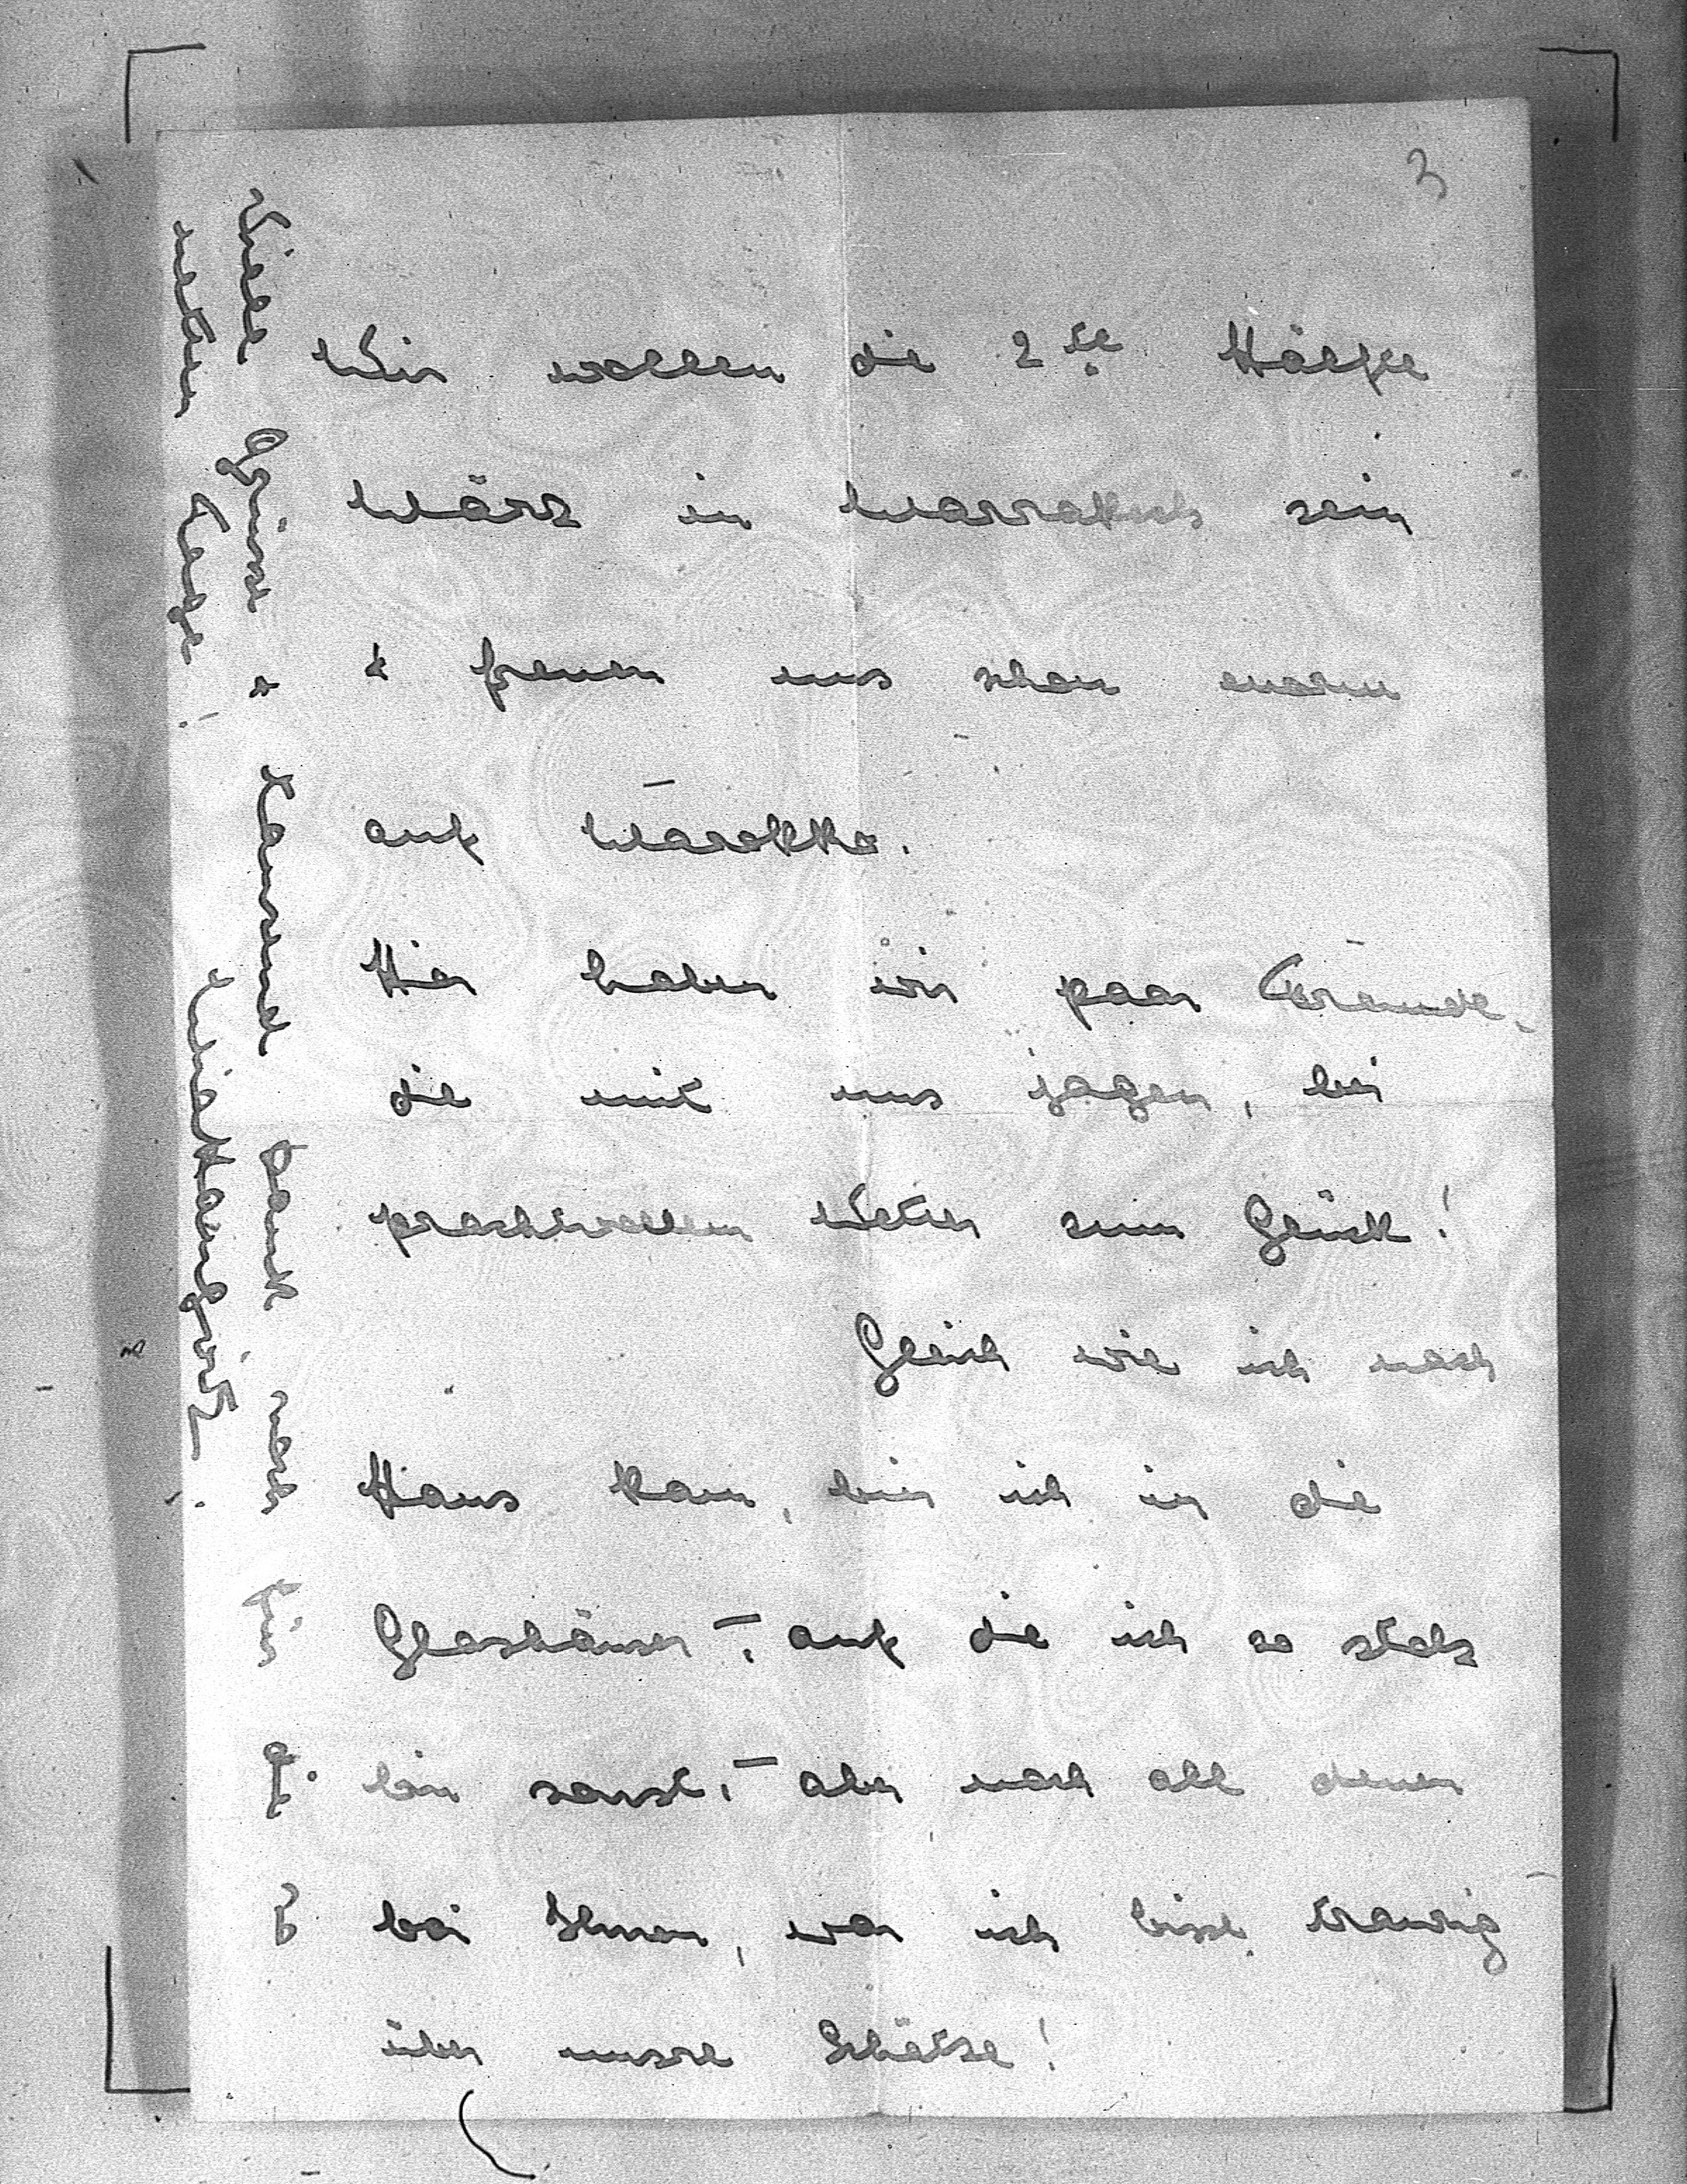 3
Wir wollen die 2te Hälfte
März in Marrakesch sein
& freuen uns schon enorm
auf Marokko.
Hier haben wir paar Freunde
die mit uns jagen, bei
prachtvollem Wetter zum Glück!
Gleich wie ich nach
Haus kam, bin ich in die
Glashäuser –, auf die ich so stolz
bin sonst, – aber nach all denen
bei Ihnen, war ich bissl traurig
über unsre Schätze!
Viele Grüsse & tausend Dank noch für
netten Tage!